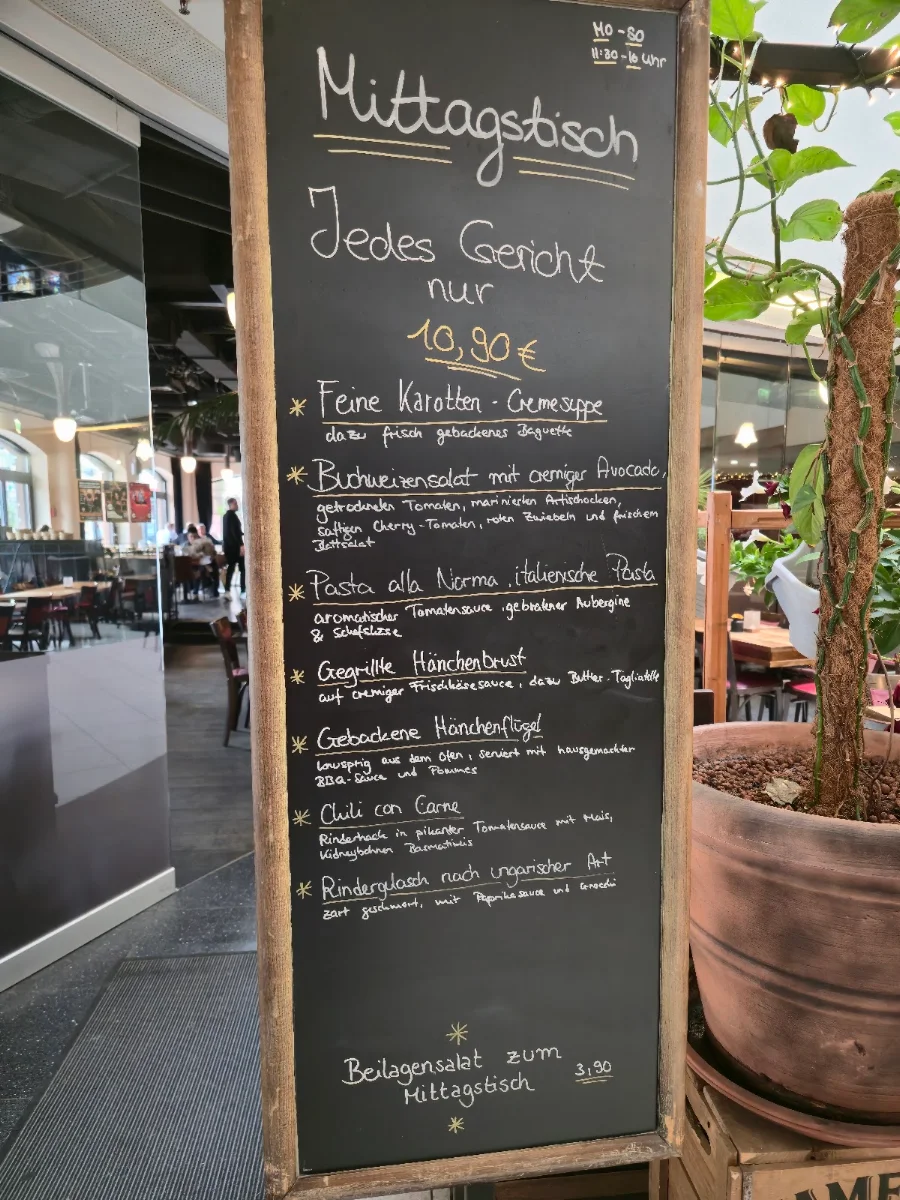 MO - SO
11:30 - 16 Uhr
Mittagstisch
Jedes Gericht
nur
10,90 €
* Feine Karotten - Cremesuppe
dazu frisch gebackenes Baguette
* Buchweizensalat mit cremiger Avocado,
getrockneten Tomaten, marinierten Artischocken,
saftigen Cherry-Tomaten, roten Zwiebeln und frischem
Blattsalat
* Pasta alla Norma, italienische Pasta
aromatischer Tomatensauce, gebratener Aubergine
& Schafskäse
* Gegrillte Hänchenbrust
auf cremiger Frischkäsesauce, dazu Butter-Tagliatelle
* Gebackene Hänchenflügel
knusprig aus dem Ofen, serviert mit hausgemachter
BBQ-Sauce und Pommes
* Chili con Carne
Rinderhack in pikanter Tomatensauce mit Mais,
Kidneybohnen Basmatireis
* Rindergulasch nach ungarischer Art
zart geschmort, mit Paprikasauce und Gnocchi
*
Beilagensalat zum
Mittagstisch 3,90
*